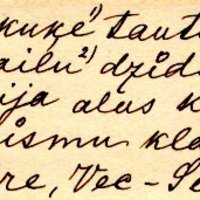 kuķe¹⁾ taut
ailu²⁾ dzied
ija alus k
ismu kla
re, Vec-Se